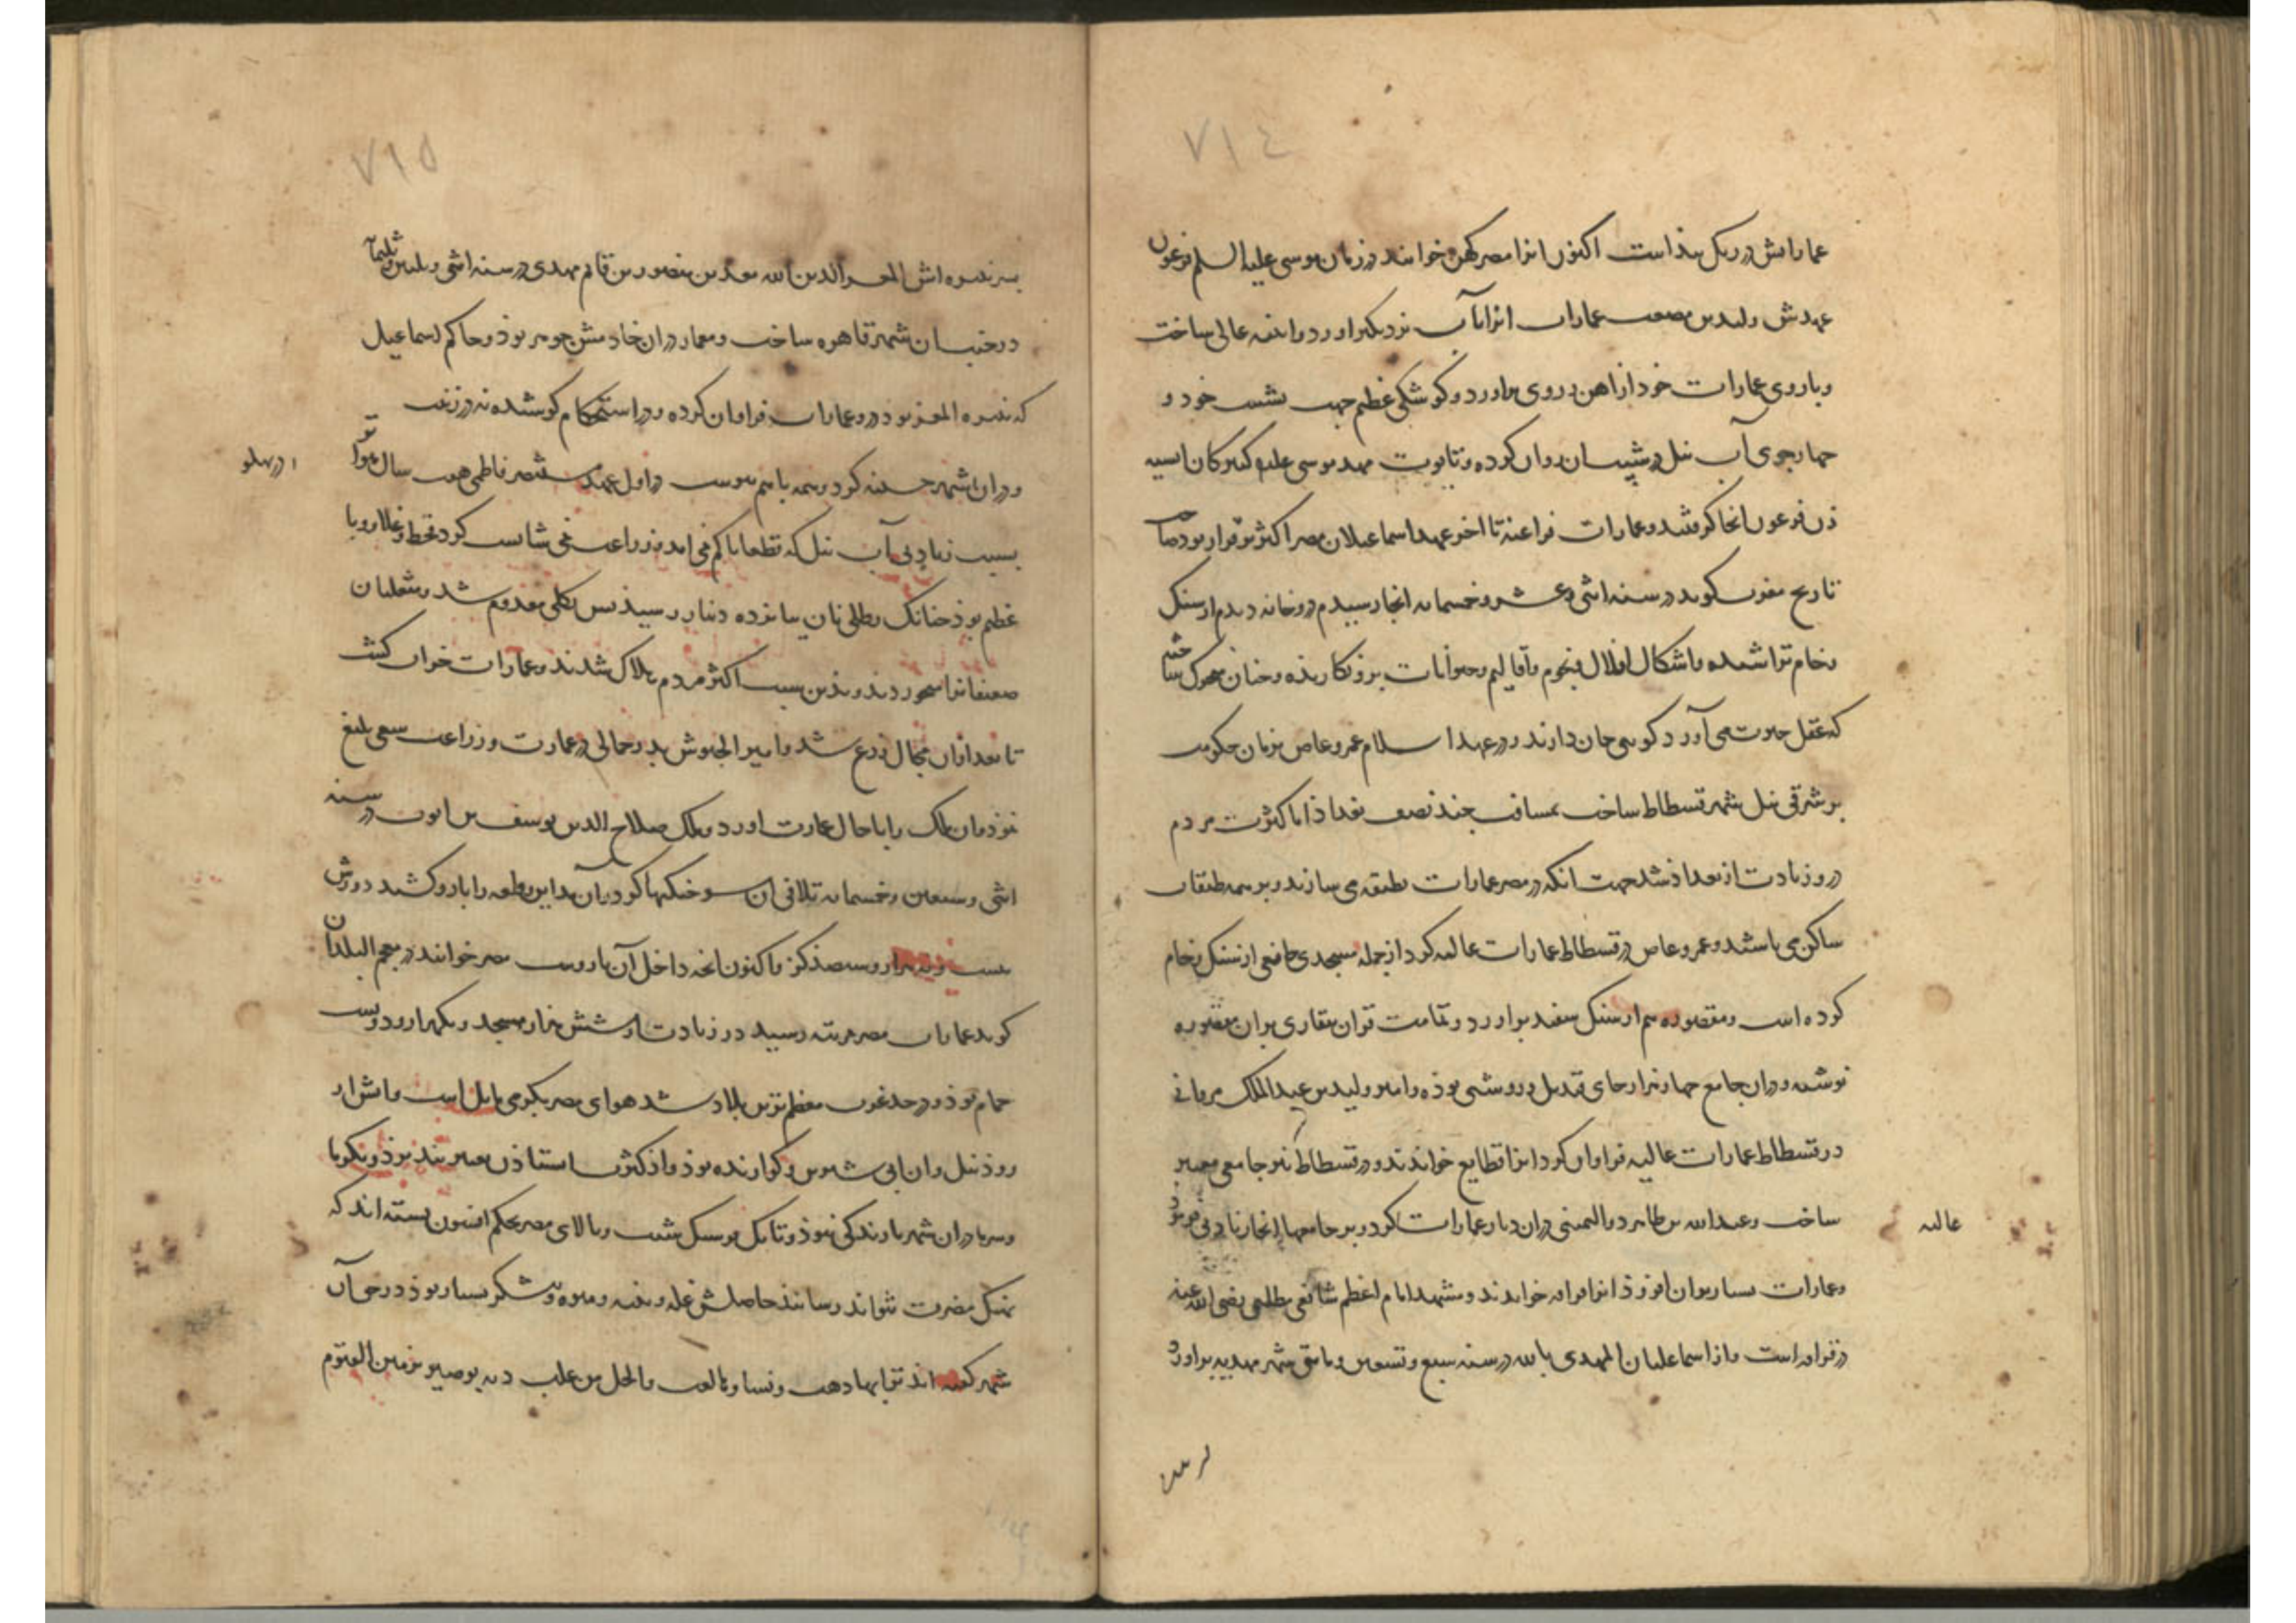 ٧١٤
عماراتش در ریک بنذاست اکنون انرا مصر کهن خوانند در زمان موسی علیه السلم فرعون
عهدش ولید بن مصعب عمارات انرا باب نزدیکتر اورد و ابنیه عالی ساخت
و باروی عمارات خود از اهن و روی براورد و کوشکی عظیم جهت نشست خود و
چهار جوی آب نیل در شیب ان روان کرده و تابوت مهد موسی علیه کنیزکان اسیه
زن فرعون انجا کرفتند و عمارات فراعنه تا اخر عهد اسماعیلان مصر اکثر برقرار بود صاحب
تاریخ مغرب کوید در سنه اثنی و عشر و خمسمایه انجا رسیدم در و خانه دیدم از سنک
رخام تراشیده باشکال افلاک و نجوم و اقالیم و حیوانات برو نکارنده و چنان ساخته
که عقل حیرت می آورد کویی جان دارند و در عهد اسلام عمرو عاص بزمان حکومت
بر شرقی نیل شهر فسطاط ساخت بمسافت چند نصف بغداد اما کثرت مردم
درو زیادت از بغداد شد جهت انکه در مصر عمارات بطبقه می سازند و بر همه طبقات
ساکن می باشند و عمرو عاص در فسطاط عمارات عالیه کرد از جمله مسجدی جامعی از سنک رخام
کرده است و مقصوره هم از سنک سفید براورد و تمامت قران بقاری بران مقصوره
نوشته و دران جامع چهار هزار جای قندیل و روشنی بوذه و امیر ولید بن عبدالملک مروانی
در فسطاط عمارات عالیه فراوان کرد انرا قطایع خواندند و در فسطاط نیز جامعی معتبر
ساخت و عبدالله بن طاهر ذوالیمینی دران دیار عمارات کرد و بر جامعها انجا زیادتی فرمود
عالیه
و عمارات بسیار بران افزوذ انرا قرافه خواندند و مشهد امام اعظم شافعی مطلبی رضی الله عنه
در قرافه است و از اسماعلیان المهدی بالله در سنه سبع و تسعین و مایتی شهر مهدیه براورد
٧١٥
پسر نبیره اش المعز الدین الله معد بن منصور بن قایم مهدی در سنه اثنی و ثلثمایه
در جنب ان شهر قاهره ساخت و معمار دران خادمش جوهر بوذ و حاکم اسماعیل
که نبیره المعز بود درو عمارات فراوان کرده و در استحکام کوشیده نه در زینت
و دران شهر کرد و همه باهم پیوست در اول عهد مستنصر فاطمی هفت سال متواتر
در پهلو
بسبب زیادتی آب نیل که قطعا باکم نمی امد و زراعت نمی شایست کرد قحط و غلا و وبا
عظیم بوذ چنانک رطلی نان پانزده دینار رسید پس بکلی معدوم شد متغلبان
ضعفا را میخوردند و بذین سبب اکثر مردم هلاک شدند و عمارات خراب کشت
تا بعد ازان مجال زرع شد و امیر الجیوش بدر جمالی در عمارت و زراعت سعی بلیغ
نموذ و ان ملک را باحال عمارت اورد و ملک صلاح الدین یوسف بن ایوب در سنه
اثنی و سبعین و خمسمایه تلافی ان سوختکیها کرد و بران مداین و قلعه را بارو کشید دورش
بیست و نه هزار و سیصد کز و اکنون انچه داخل آن باروست مصر خوانند در معجم البلدان
کوید عمارات مصر بمرتبه رسید درو زیادت از شش هزار مسجد و یکهزار و دویست
حمام بوذ و در حد غرب معظم ترین بلاد شد هوای مصر بکرمی مایل است و ابش از
روذ نیل و ان ابی شیرین و کوارنده بوذ و از کثرت استاذن بهتر بند بوذ و نکو
و سرما دران شهر بارندکی نبوذ و تا یک هوسنک شیب و بالای مصر محکم افسون بسته اند که
نهنک مضرت نتواند رسانید حاصلش غله و پنبه و میوه و نیشکر بسیار بوذ در حق آن
شهر کفته اند ترابها ذهب و نساؤها لعب و المال لمن غلب دیه بوصیر بزمین الفیوم